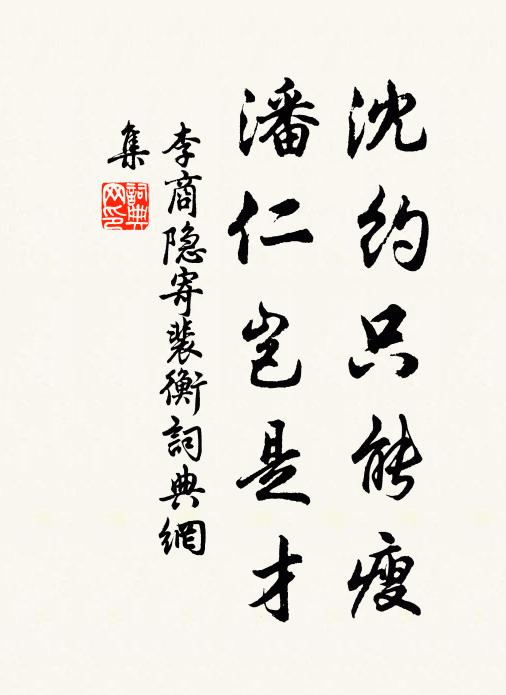 沈约只能瘦
潘仁岂是才
李商隐寄裴衡詞典網
集
詞典
网印